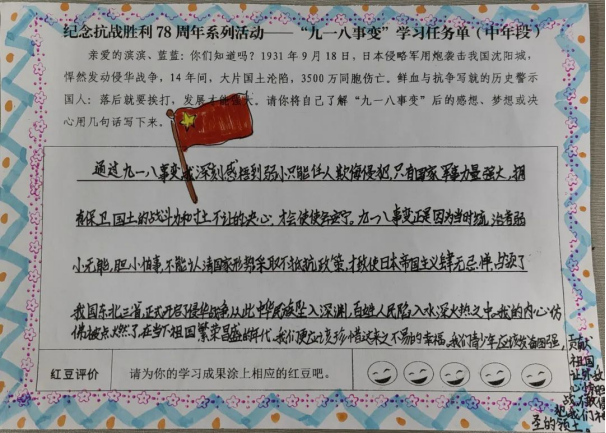 纪念抗战胜利 78 周年系列活动——“九一八事变”学习任务单（中年段）
亲爱的滨滨、蓝蓝：你们知道吗？1931 年 9 月 18 日，日本侵略军用炮袭击我国沈阳城，
悍然发动侵华战争，14 年间，大片国土沦陷，3500 万同胞伤亡。鲜血与抗争写就的历史警示
国人：落后就要挨打，发展才能强大。请你将自己了解“九一八事变”后的感想、梦想或决
心用几句话写下来。
通过九一八事变我深刻感悟到弱小只能任人欺侮侵犯，只有国家军事力量强大，拥
有保卫国土的战斗力和寸土不让的决心，才会使使安宁。九一八事变正是因为当时统治者弱
小无能，胆小怕事，不能认清国家形势采取不抵抗政策，才致使日本帝国主义肆无忌惮，占领了
我国东北三省，正式开启了侵华战争，从此中华民族坠入深渊，百姓人民陷入水深火热之中。我的内心仿
佛被点燃了，在当下祖国繁荣昌盛的年代，我们更应珍惜这来之不易的幸福。我们青少年应该发奋图强，
贡献
祖国
让
心
战不敢侵
犯我们神
圣的领土。
红豆评价 请为你的学习成果涂上相应的红豆吧。